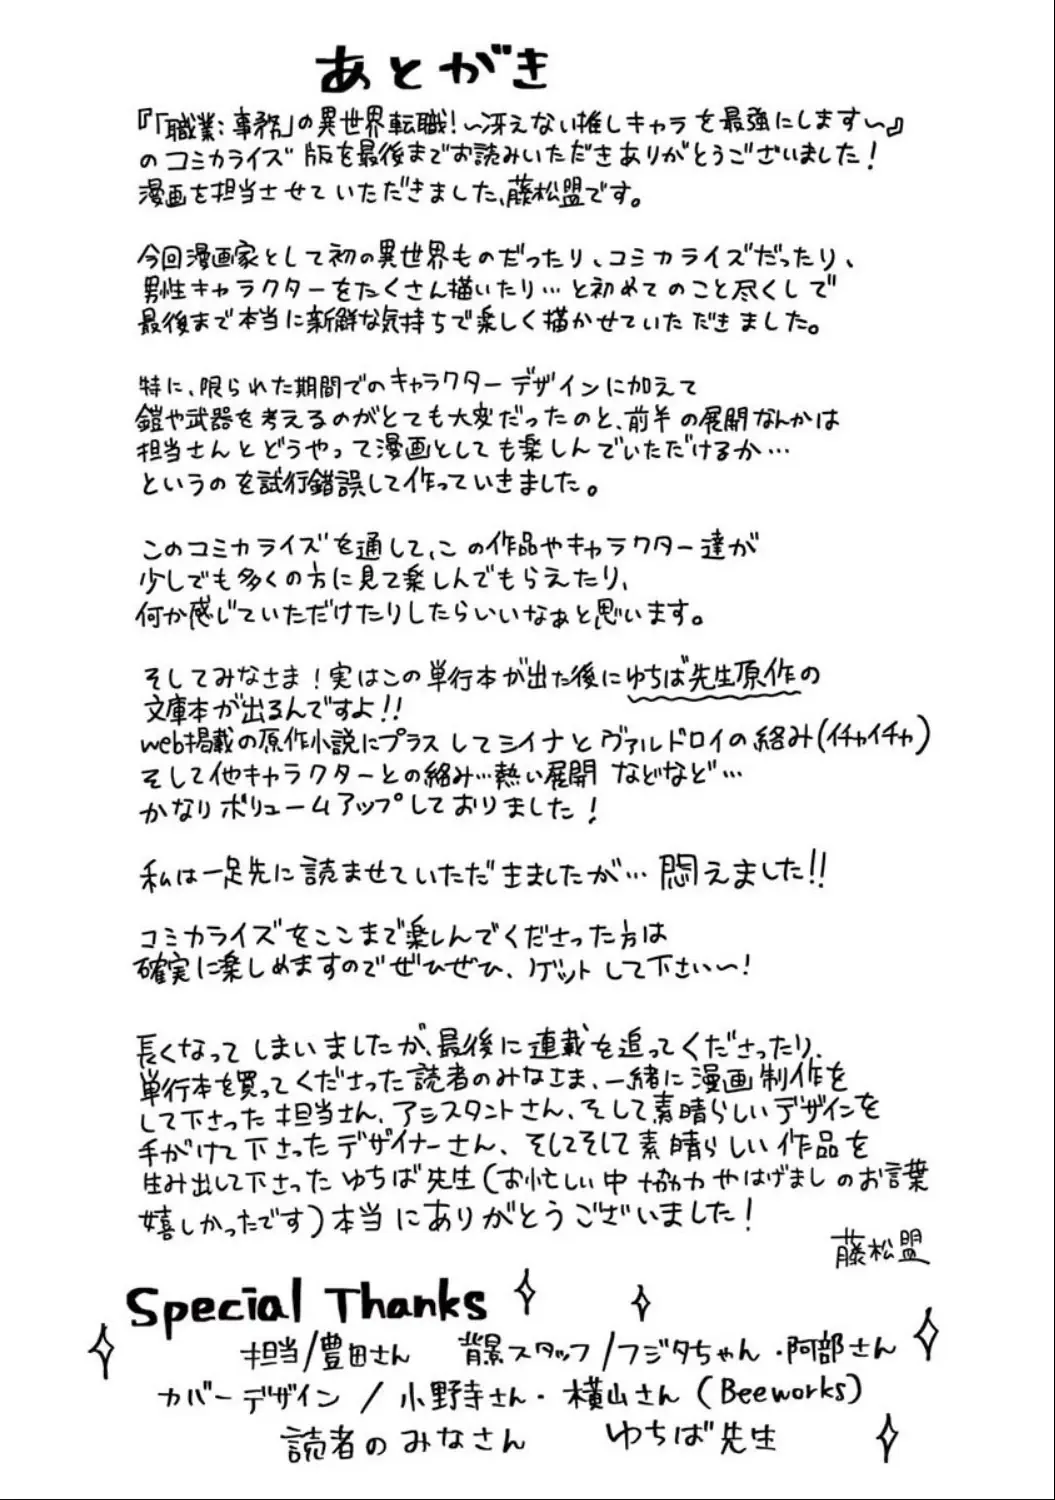 あとがき
『「職業:事務」の異世界転職!〜冴えない推しキャラを最強にします〜』
のコミカライズ版を最後までお読みいただきありがとうございました!
漫画を担当させていただきました、藤松盟です。
今回漫画家として初の異世界ものだったり、コミカライズだったり、
男性キャラクターをたくさん描いたり…と初めてのこと尽くしで
最後まで本当に新鮮な気持ちで楽しく描かせていただきました。
特に、限られた期間でのキャラクターデザインに加えて
鎧や武器を考えるのがとても大変だったのと、前半の展開なんかは
担当さんとどうやって漫画としても楽しんでいただけるか…
というのを試行錯誤して作っていきました。
このコミカライズを通して、この作品やキャラクター達が
少しでも多くの方に見て楽しんでもらえたり、
何か感じていただけたりしたらいいなぁと思います。
そしてみなさま!実はこの単行本が出た後にゆちば先生原作の
文庫本が出るんですよ!!
web掲載の原作小説にプラスしてシイナとヴァルドロイの絡み(イチャイチャ)
そして他キャラクターとの絡み…熱い展開などなど…
かなりボリュームアップしておりました!
私は一足先に読ませていただきましたが…悶えました!!
コミカライズをここまで楽しんでくださった方は
確実に楽しめますのでぜひぜひ、ゲットして下さい〜!
長くなってしまいましたが、最後に連載を追ってくださったり、
単行本を買ってくださった読者のみなさま、一緒に漫画制作を
して下さった担当さん、アシスタントさん、そして素晴らしいデザインを
手がけて下さったデザイナーさん、そしてそして素晴らしい作品を
生み出して下さったゆちば先生(お忙しい中協力やはげましのお言葉
嬉しかったです)本当にありがとうございました!
藤松盟
Special Thanks
担当/豊田さん 背景スタッフ/フジタちゃん・阿部さん
カバーデザイン/小野寺さん・横山さん(Beeworks)
読者のみなさん ゆちば先生